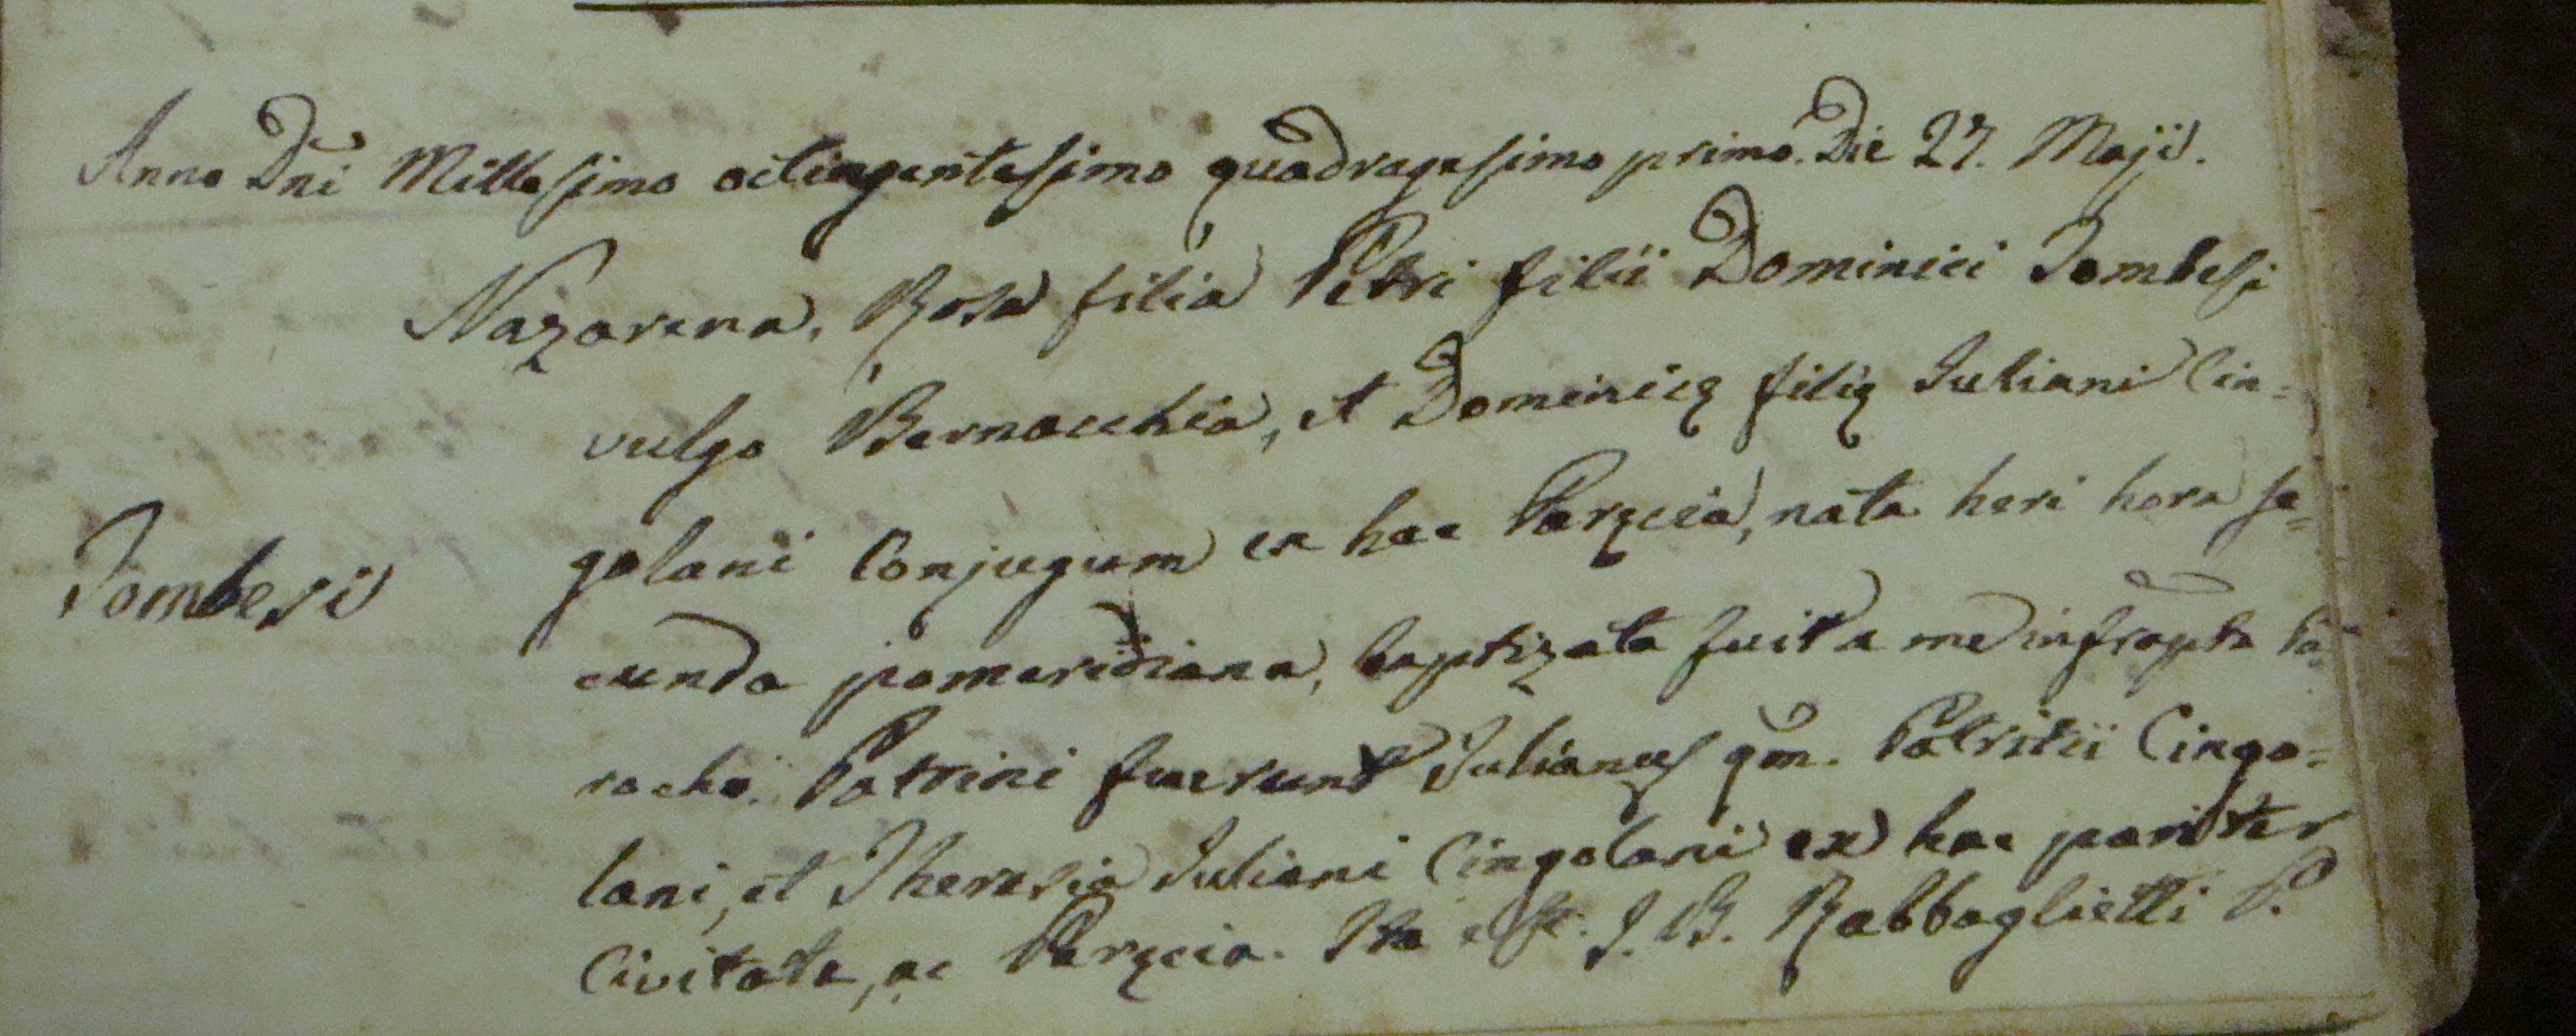 Anno Dñi Millesimo octingentesimo quadragesimo primo. Die 27. Maji.
Nazarena, Rosa filia Petri filii Dominici Tombesi
vulgo Bernacchia, et Dominicę filię Juliani Cin=
golani Conjugum ex hac Paręcia, nata heri hora se=
cunda pomeridiana, baptizata fuit a me infrapto Pa=
rocho. Patrini fuerunt Julianus qm. Patritii Cingo=
Tombesi
lani, et Theresia Juliani Cingolani ex hac pariter
Civitate, ac Paręcia. Ita est. J. B. Rabbaglietti P.